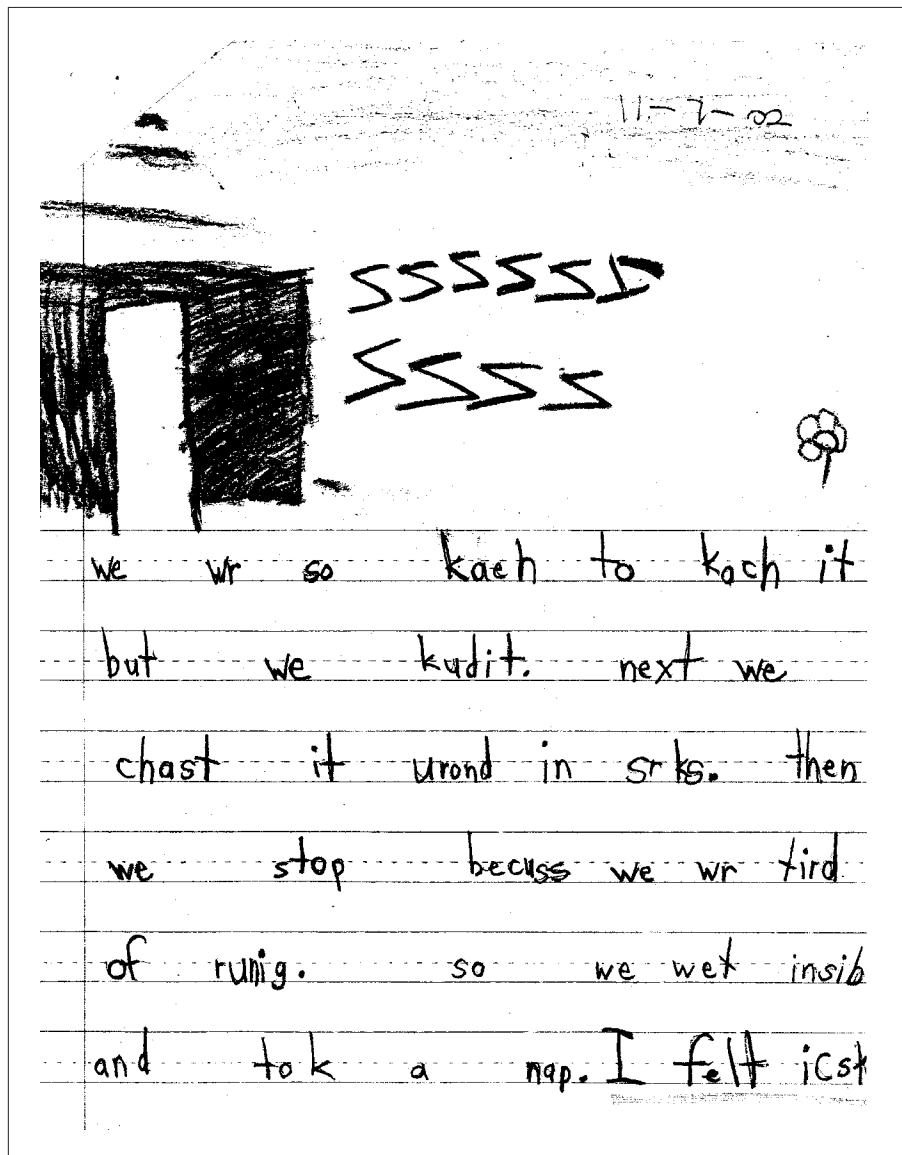 11-7-02
SSSSSD
SSSS
we wr so kach to kach it
but we kudit. next we
chast it urond in srks. then
we stop becuss we wr tird
of runig. so we wet insib
and tok a nap. I felt icst